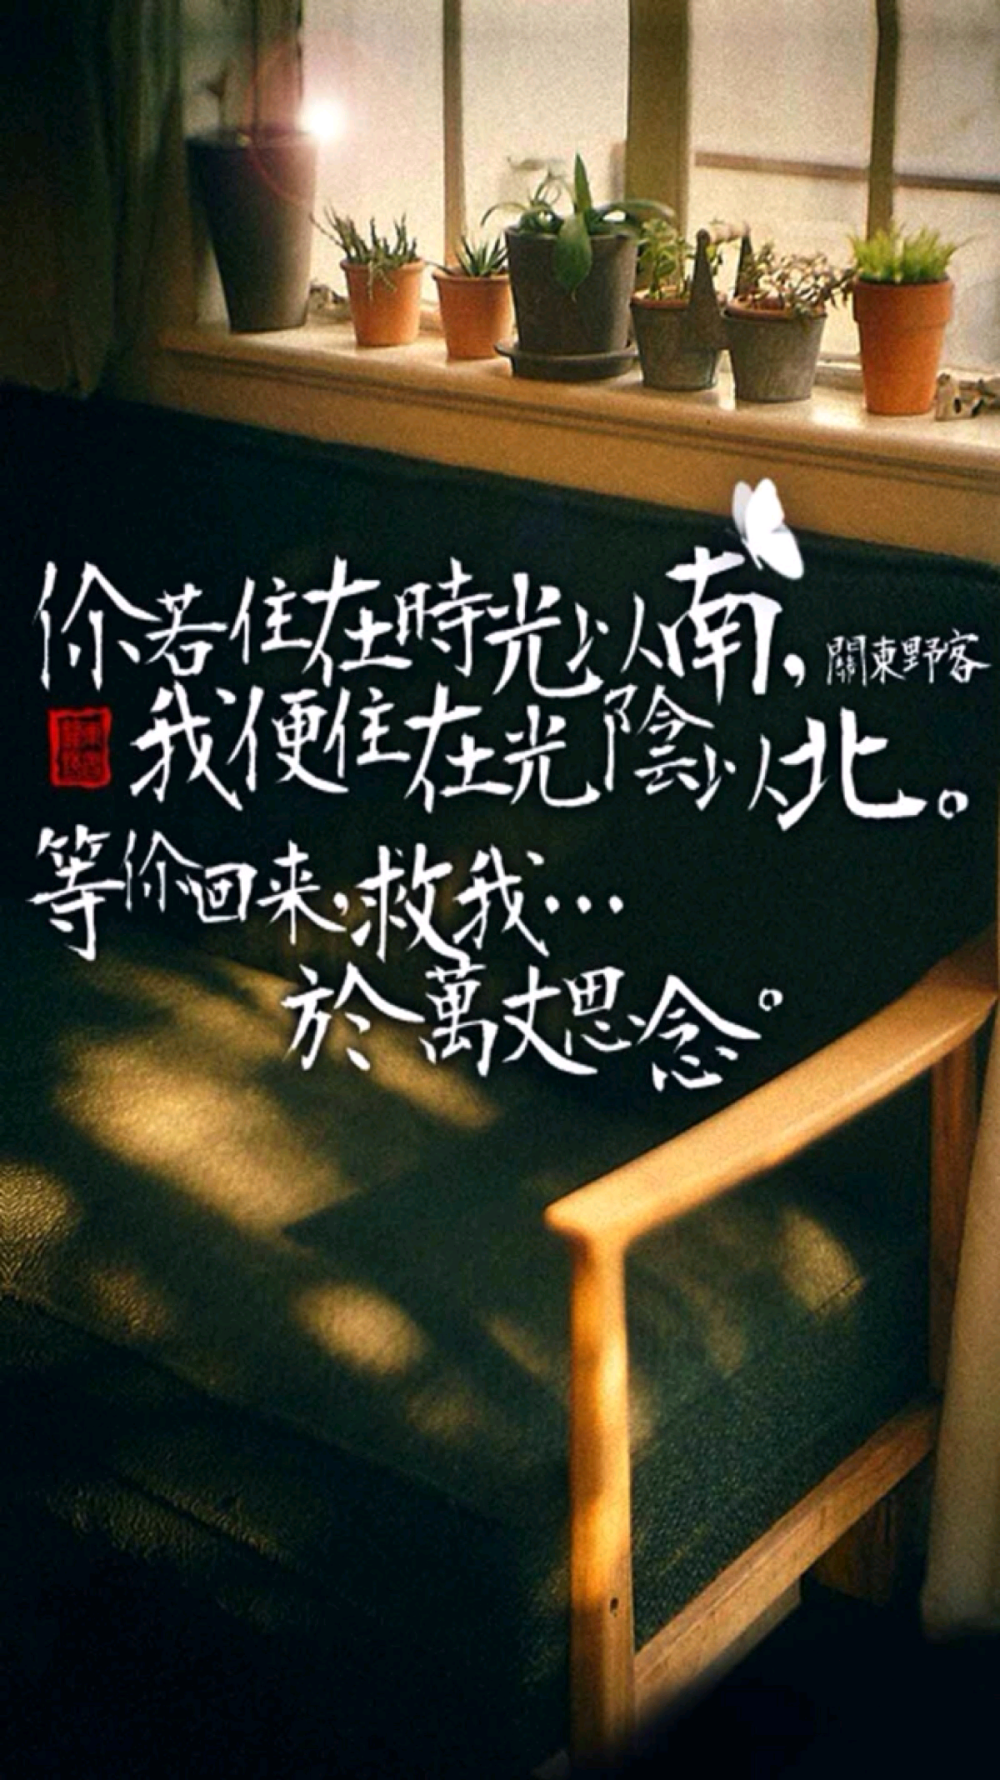 你若住在時光以南，
關東野客
我便住在光陰以北。
等你回来，救我…
於萬丈思念。